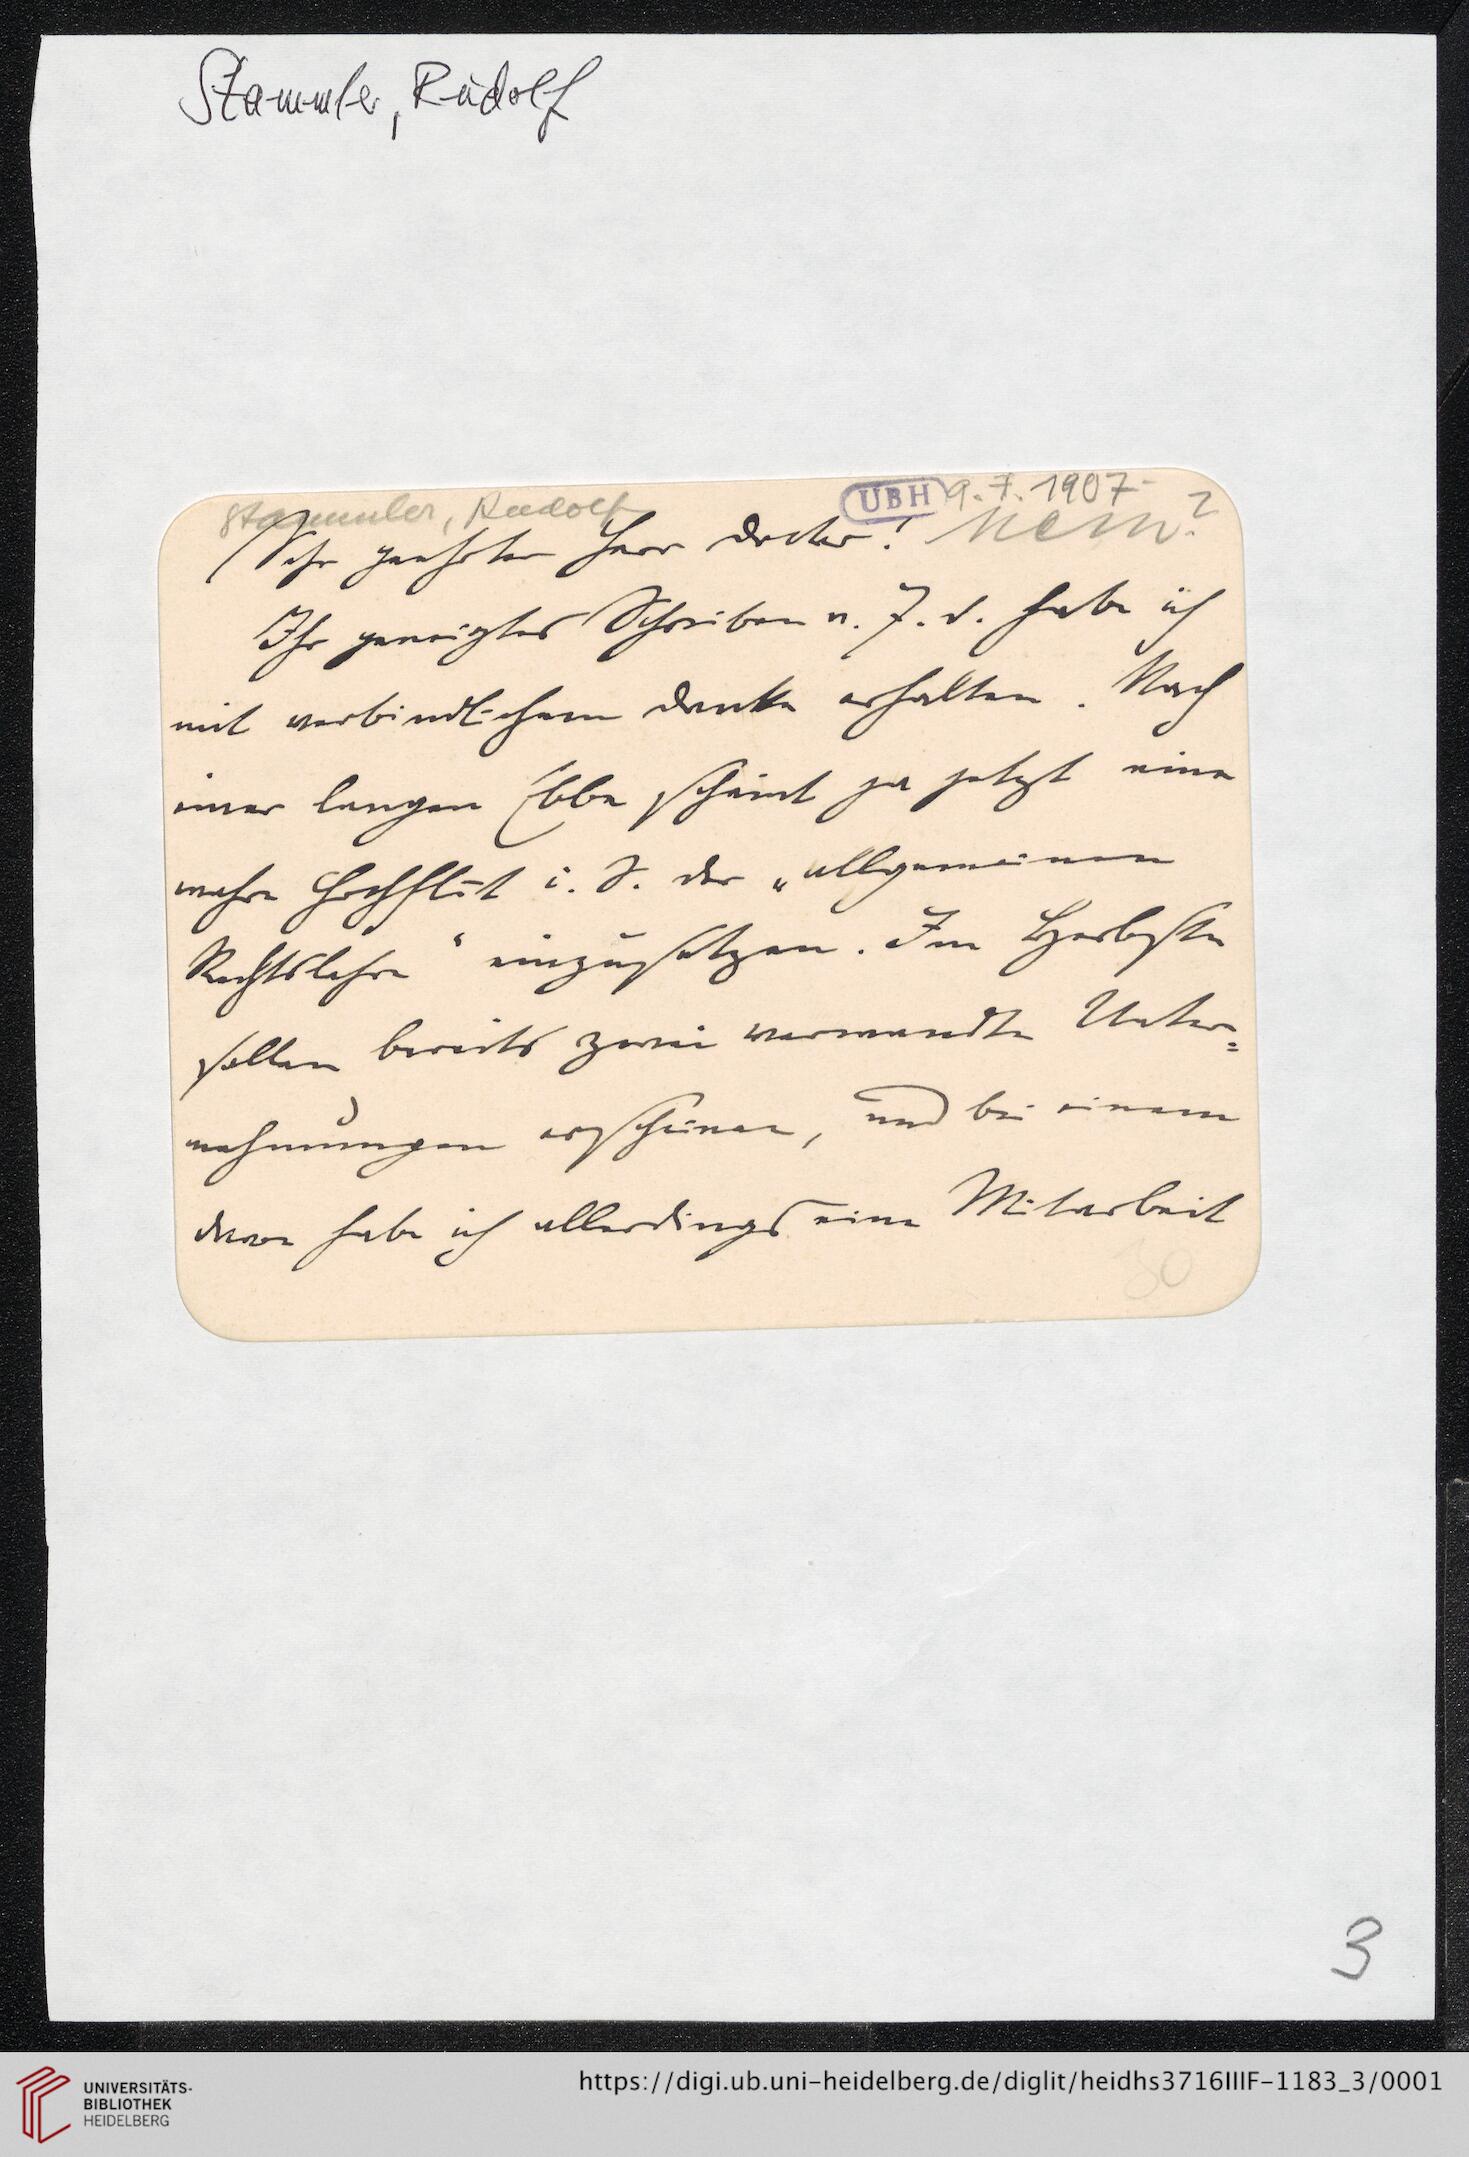 Stammler, Rudolf
Stammler, Rudolf
UBH 9. 7. 1907
Sehr geehrter Herr Doctor!
Ihr geneigtes Schreiben v. 7. d. habe ich
mit verbindlichem Danke erhalten. Nach
einer langen Ebbe scheint ja jetzt eine
wahre Hochflut i. S. der „allgemeinen
Rechtslehre" einzusetzen. Im Herbste
sollen bereits zwei verwandte Unter=
nehmungen erscheinen, und bei einem
davon habe ich allerdings eine Mitarbeit
30
3
UNIVERSITÄTS-
BIBLIOTHEK
HEIDELBERG
https://digi.ub.uni-heidelberg.de/diglit/heidhs3716IIIF-1183_3/0001